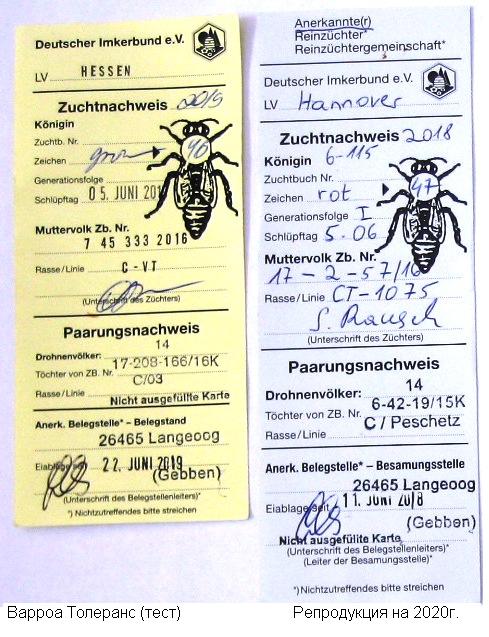 Deutscher Imkerbund e.V.
LV HESSEN
Zuchtnachweis 2019
Königin
Zuchtb. Nr.
Zeichen grün 46
Generationsfolge
Schlüpftag 05. JUNI 201
Muttervolk Zb. Nr.
7 45 333 2016
Rasse/Linie C-VT
(Unterschrift des Züchters)
Paarungsnachweis
14
Drohnenvölker:
17-208-166/16K
Töchter von ZB. Nr.
C/03
Rasse/Linie
Nicht ausgefüllte Karte
Anerk. Belegstelle* – Belegstand
26465 Langeoog
Eiablage seit 22. JUNI 2019
(Gebben)
(Unterschrift des Belegstellenleiters)*
*) Nichtzutreffendes bitte streichen
Anerkannte(r)
Reinzüchter*
Reinzüchtergemeinschaft*
Deutscher Imkerbund e.V.
LV Hannover
Zuchtnachweis 2018
Königin 6-115
Zuchtbuch Nr.
Zeichen rot 47
Generationsfolge I
Schlüpftag 5.06
Muttervolk Zb. Nr.
17-2-57/16
Rasse/Linie CT-1075
S. Rausch
(Unterschrift des Züchters)
Paarungsnachweis
14
Drohnenvölker:
6-42-19/15K
Töchter von ZB. Nr.
C / Peschetz
Rasse/Linie
Anerk. Belegstelle* – Besamungsstelle
26465 Langeoog
Eiablage seit 11. JUNI 2018
(Gebben)
Nicht ausgefüllte Karte
(Unterschrift des Belegstellenleiters)*
(Leiter der Besamungsstelle)*
*) Nichtzutreffendes bitte streichen
Варроа Толеранс (тест)
Репродукция на 2020г.